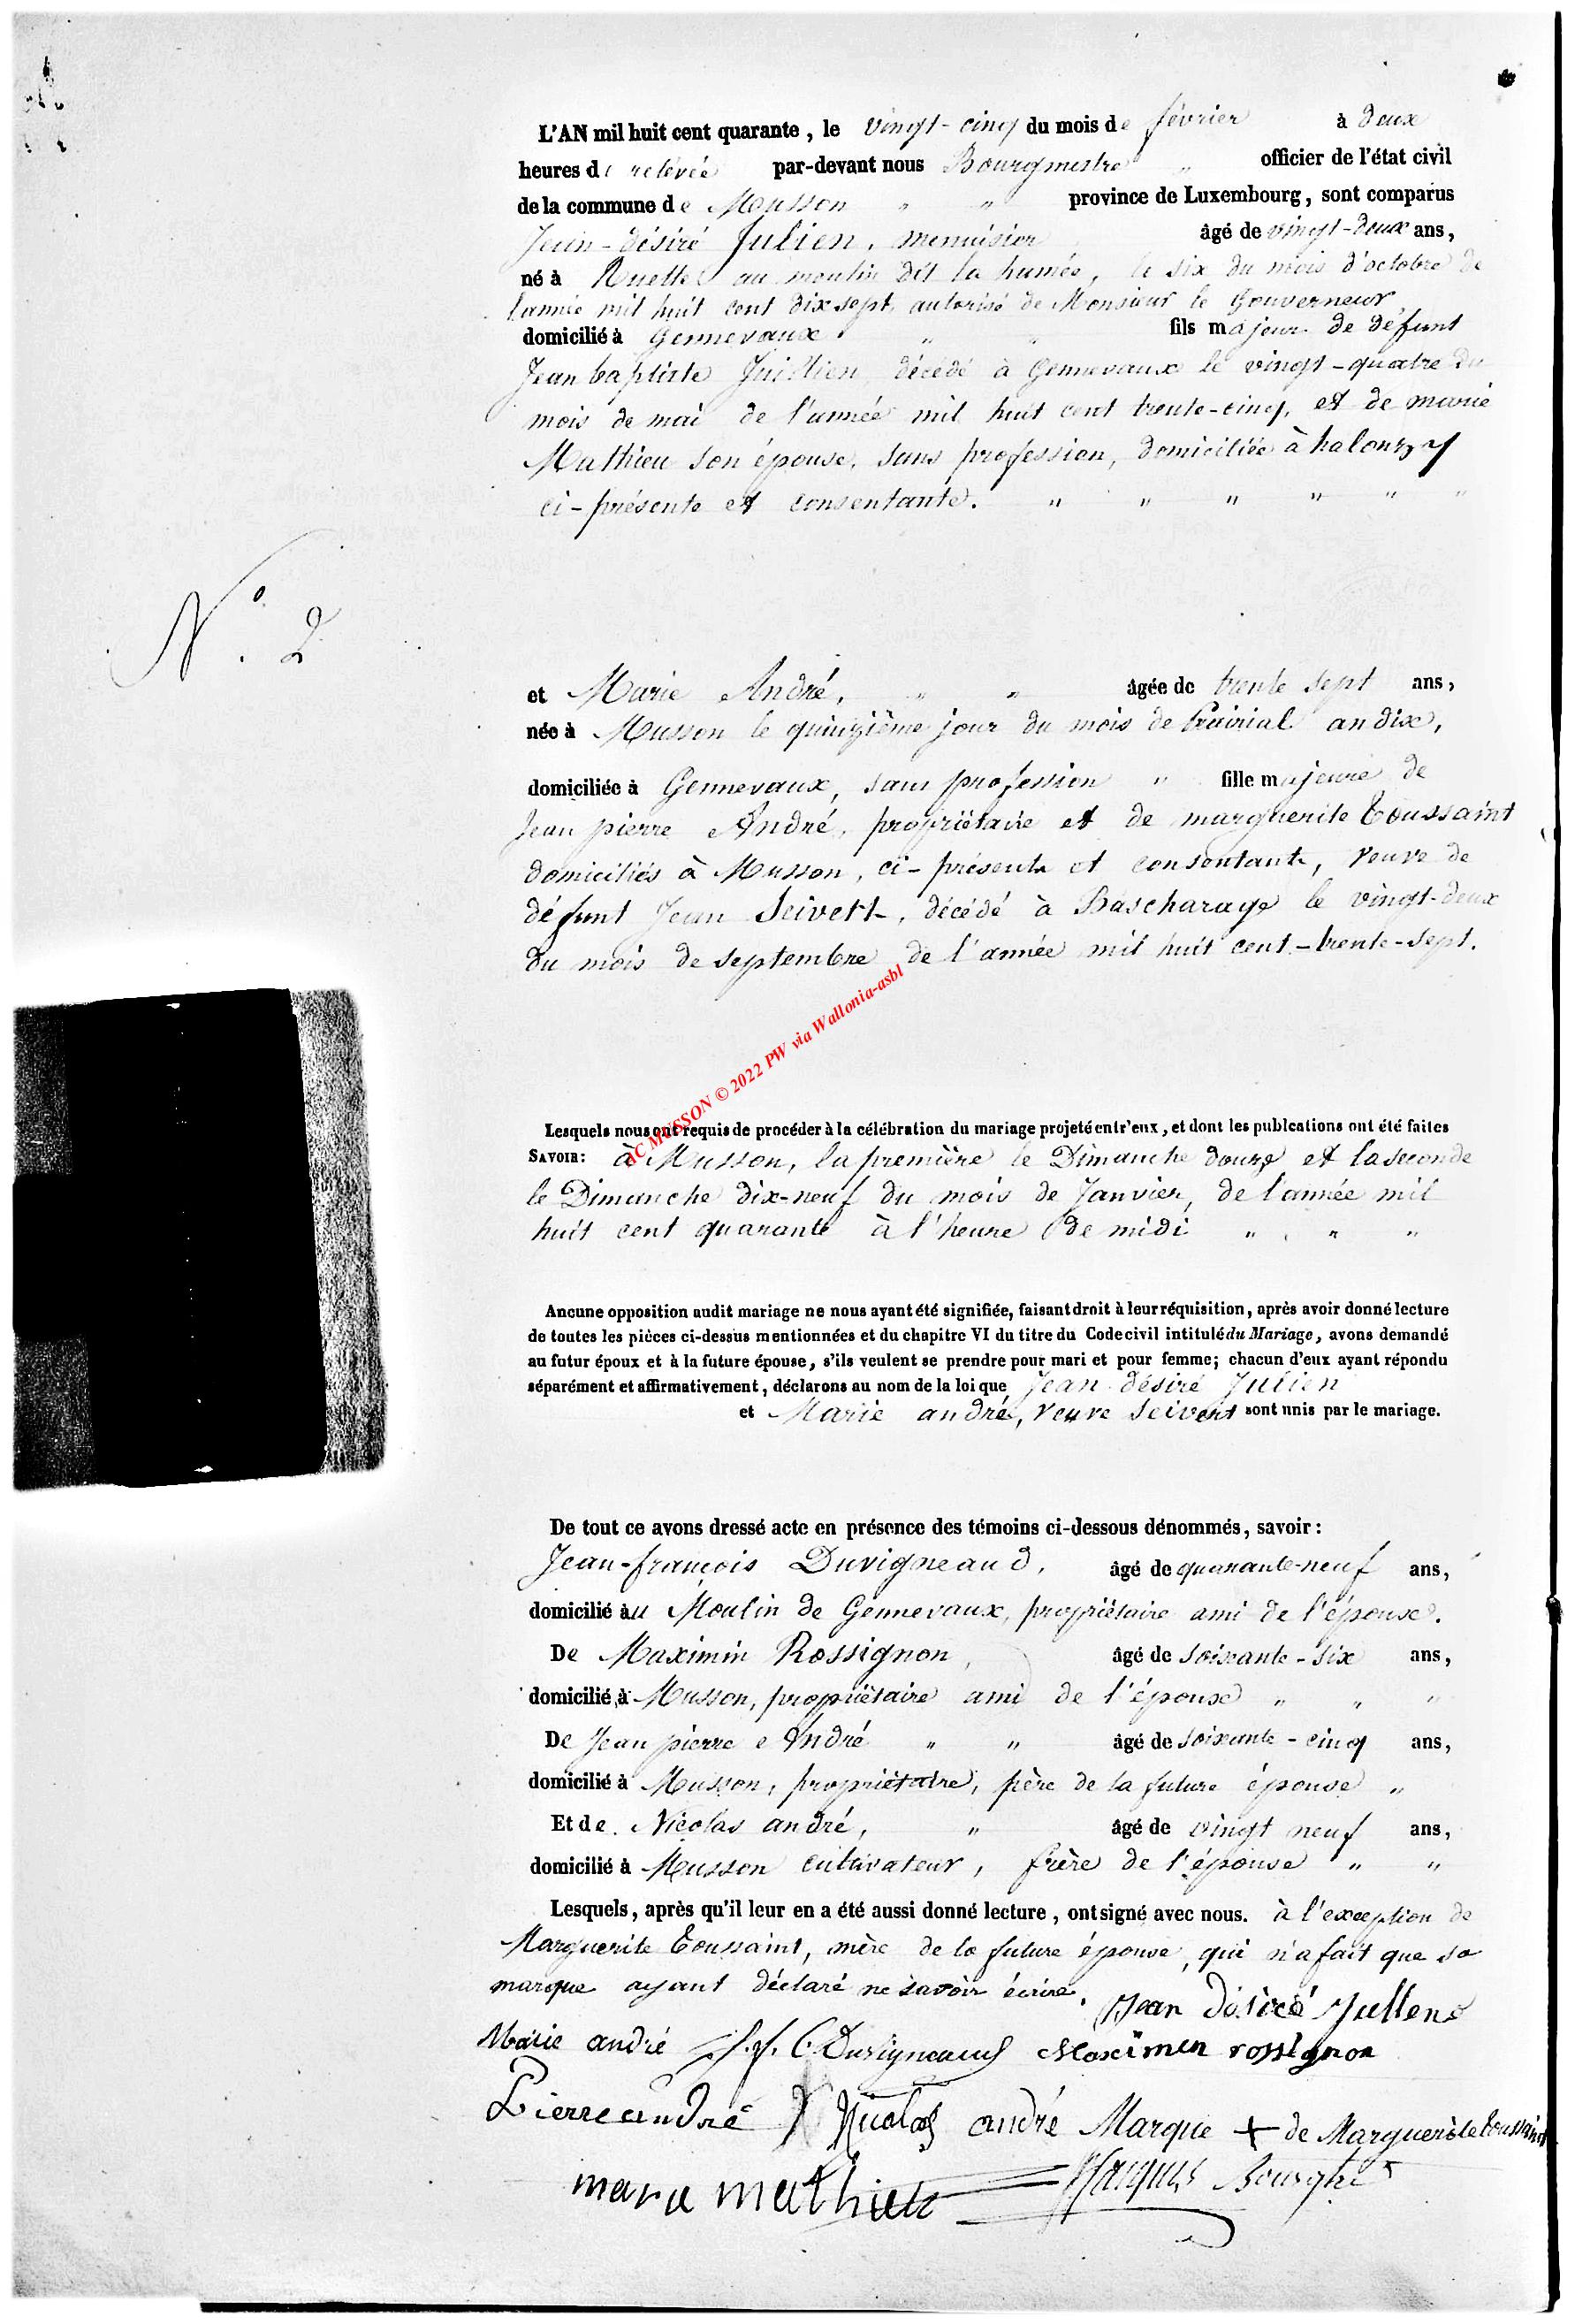 L'AN mil huit cent quarante, le vingt-cinq du mois de février à deux
heures de relevée par-devant nous Bourgmestre " officier de l'état civil
de la commune de Musson " " province de Luxembourg, sont comparus
Jean-désiré Julien, menuisier âgé de vingt-deux ans,
né à Ruette au moulin dit la hamée, le six du mois d'octobre de
l'année mil huit cent dix sept, autorisé de Monsieur le Gouverneur
domicilié à Gennevaux " " fils majeur de défunt
Jean baptiste Juillien, décédé à Gennevaux le vingt-quatre du
mois de mai de l'année mil huit cent trente-cinq, et de marie
Mathieu son épouse, sans profession, domiciliée à halonzy
ci-présente et consentante. " " " " " "
N° 2
et Marie André, " " âgée de trente sept ans,
née à Musson le quinzième jour du mois de Prairial an dix,
domiciliée à Gennevaux, sans profession " fille majeure de
Jean pierre André, propriétaire et de marguerite Toussaint
domiciliés à Musson, ci-présents et consentants, veuve de
défunt Jean Seivert, décédé à Bascharage le vingt-deux
du mois de septembre de l'année mil huit cent-trente-sept.
AC MUSSON © 2022 PW via Wallonia-asbl
Lesquels nous ont requis de procéder à la célébration du mariage projeté entr'eux, et dont les publcations ont été faites
SAVOIR: à Musson, la première le Dimanche douze et la seconde
le Dimanche dix-neuf du mois de Janvier, de l'année mil
huit cent quarante à l'heure de midi " " "
Aucune opposition audit mariage ne nous ayant été signifiée, faisant droit à leur réquisition, après avoir donné lecture
de toutes les pièces ci-dessus mentionnées et du chapitre VI du titre du Code civil intitulé du Mariage, avons demandé
au futur époux et à la future épouse, s'ils veulent se prendre pour mari et pour femme; chacun d'eux ayant répondu
séparément et affirmativement, déclarons au nom de la loi que Jean désiré Julien
et Marie andré, veuve Seivert sont unis par le mariage.
De tout ce avons dressé acte en présence des témoins ci-dessous dénommés, savoir:
Jean-françois Duvigneaud, âgé de quarante-neuf ans,
domicilié au Moulin de Gennevaux, propriétaire ami de l'épouse.
De Maximin Rossignon, âgé de soixante-six ans,
domicilié à Musson, propriétaire ami de l'épouse " " "
De Jean pierre André " " âgé de soixante-cinq ans,
domicilié à Musson, propriétaire, père de la future épouse "
Et de Nicolas andré, " âgé de vingt neuf ans,
domicilié à Musson cultivateur, frère de l'épouse " "
Lesquels, après qu'il leur en a été aussi donné lecture, ont signé avec nous. à l'exception de
Marguerite Toussaint, mère de la future épouse, qui n'a fait que sa
marque ayant déclaré ne savoir écrire. Jean désiré Jullens
Marie andré J. f. Duvigneaud Maximen rossignon
Pierre andré Nicolas andré Marque + de Marguerite Toussaint
mara mathieu Bourgtre